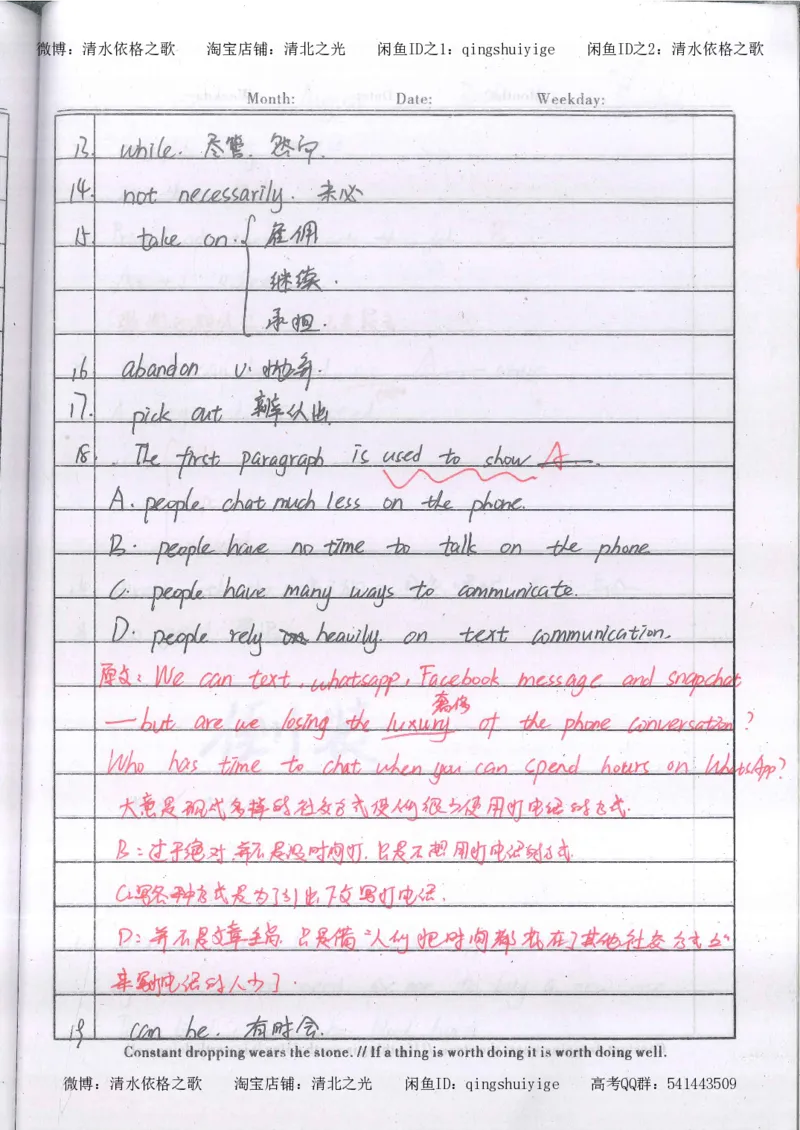 微博：清水依格之歌 淘宝店铺：清北之光 闲鱼ID之1：qingshuiyige 闲鱼ID之2：清水依格之歌
Month: Date: Weekday:
13. while. 尽管. 然而.
14. not necessarily. 未必
15. take on. { 雇佣
继续.
承担.
16. abandon v. 抛弃.
17. pick out 辨认出
18. The first paragraph is used to show A.
A. people chat much less on the phone.
B. people have no time to talk on the phone
C. people have many ways to communicate.
D. people rely heavily on text communication.
原文: We can text, whatsapp, Facebook message and snapchat
奢侈
—but are we losing the luxury of the phone conversation?
Who has time to chat when you can spend hours on WhatsApp?
大意是现代多样的社交方式使人们很少使用打电话的方式.
B: 过于绝对. 并不是没时间打. 只是不想用打电话的方式.
C: 写各种方式是为了引出下文写打电话.
D: 并不是文章主旨. 只是借“人们把时间都花在了其他社交方式”
来写打电话的人少了
19 can be. 有时会.
Constant dropping wears the stone. // If a thing is worth doing it is worth doing well.
微博：清水依格之歌 淘宝店铺：清北之光 闲鱼ID：qingshuiyige 高考QQ群：541443509